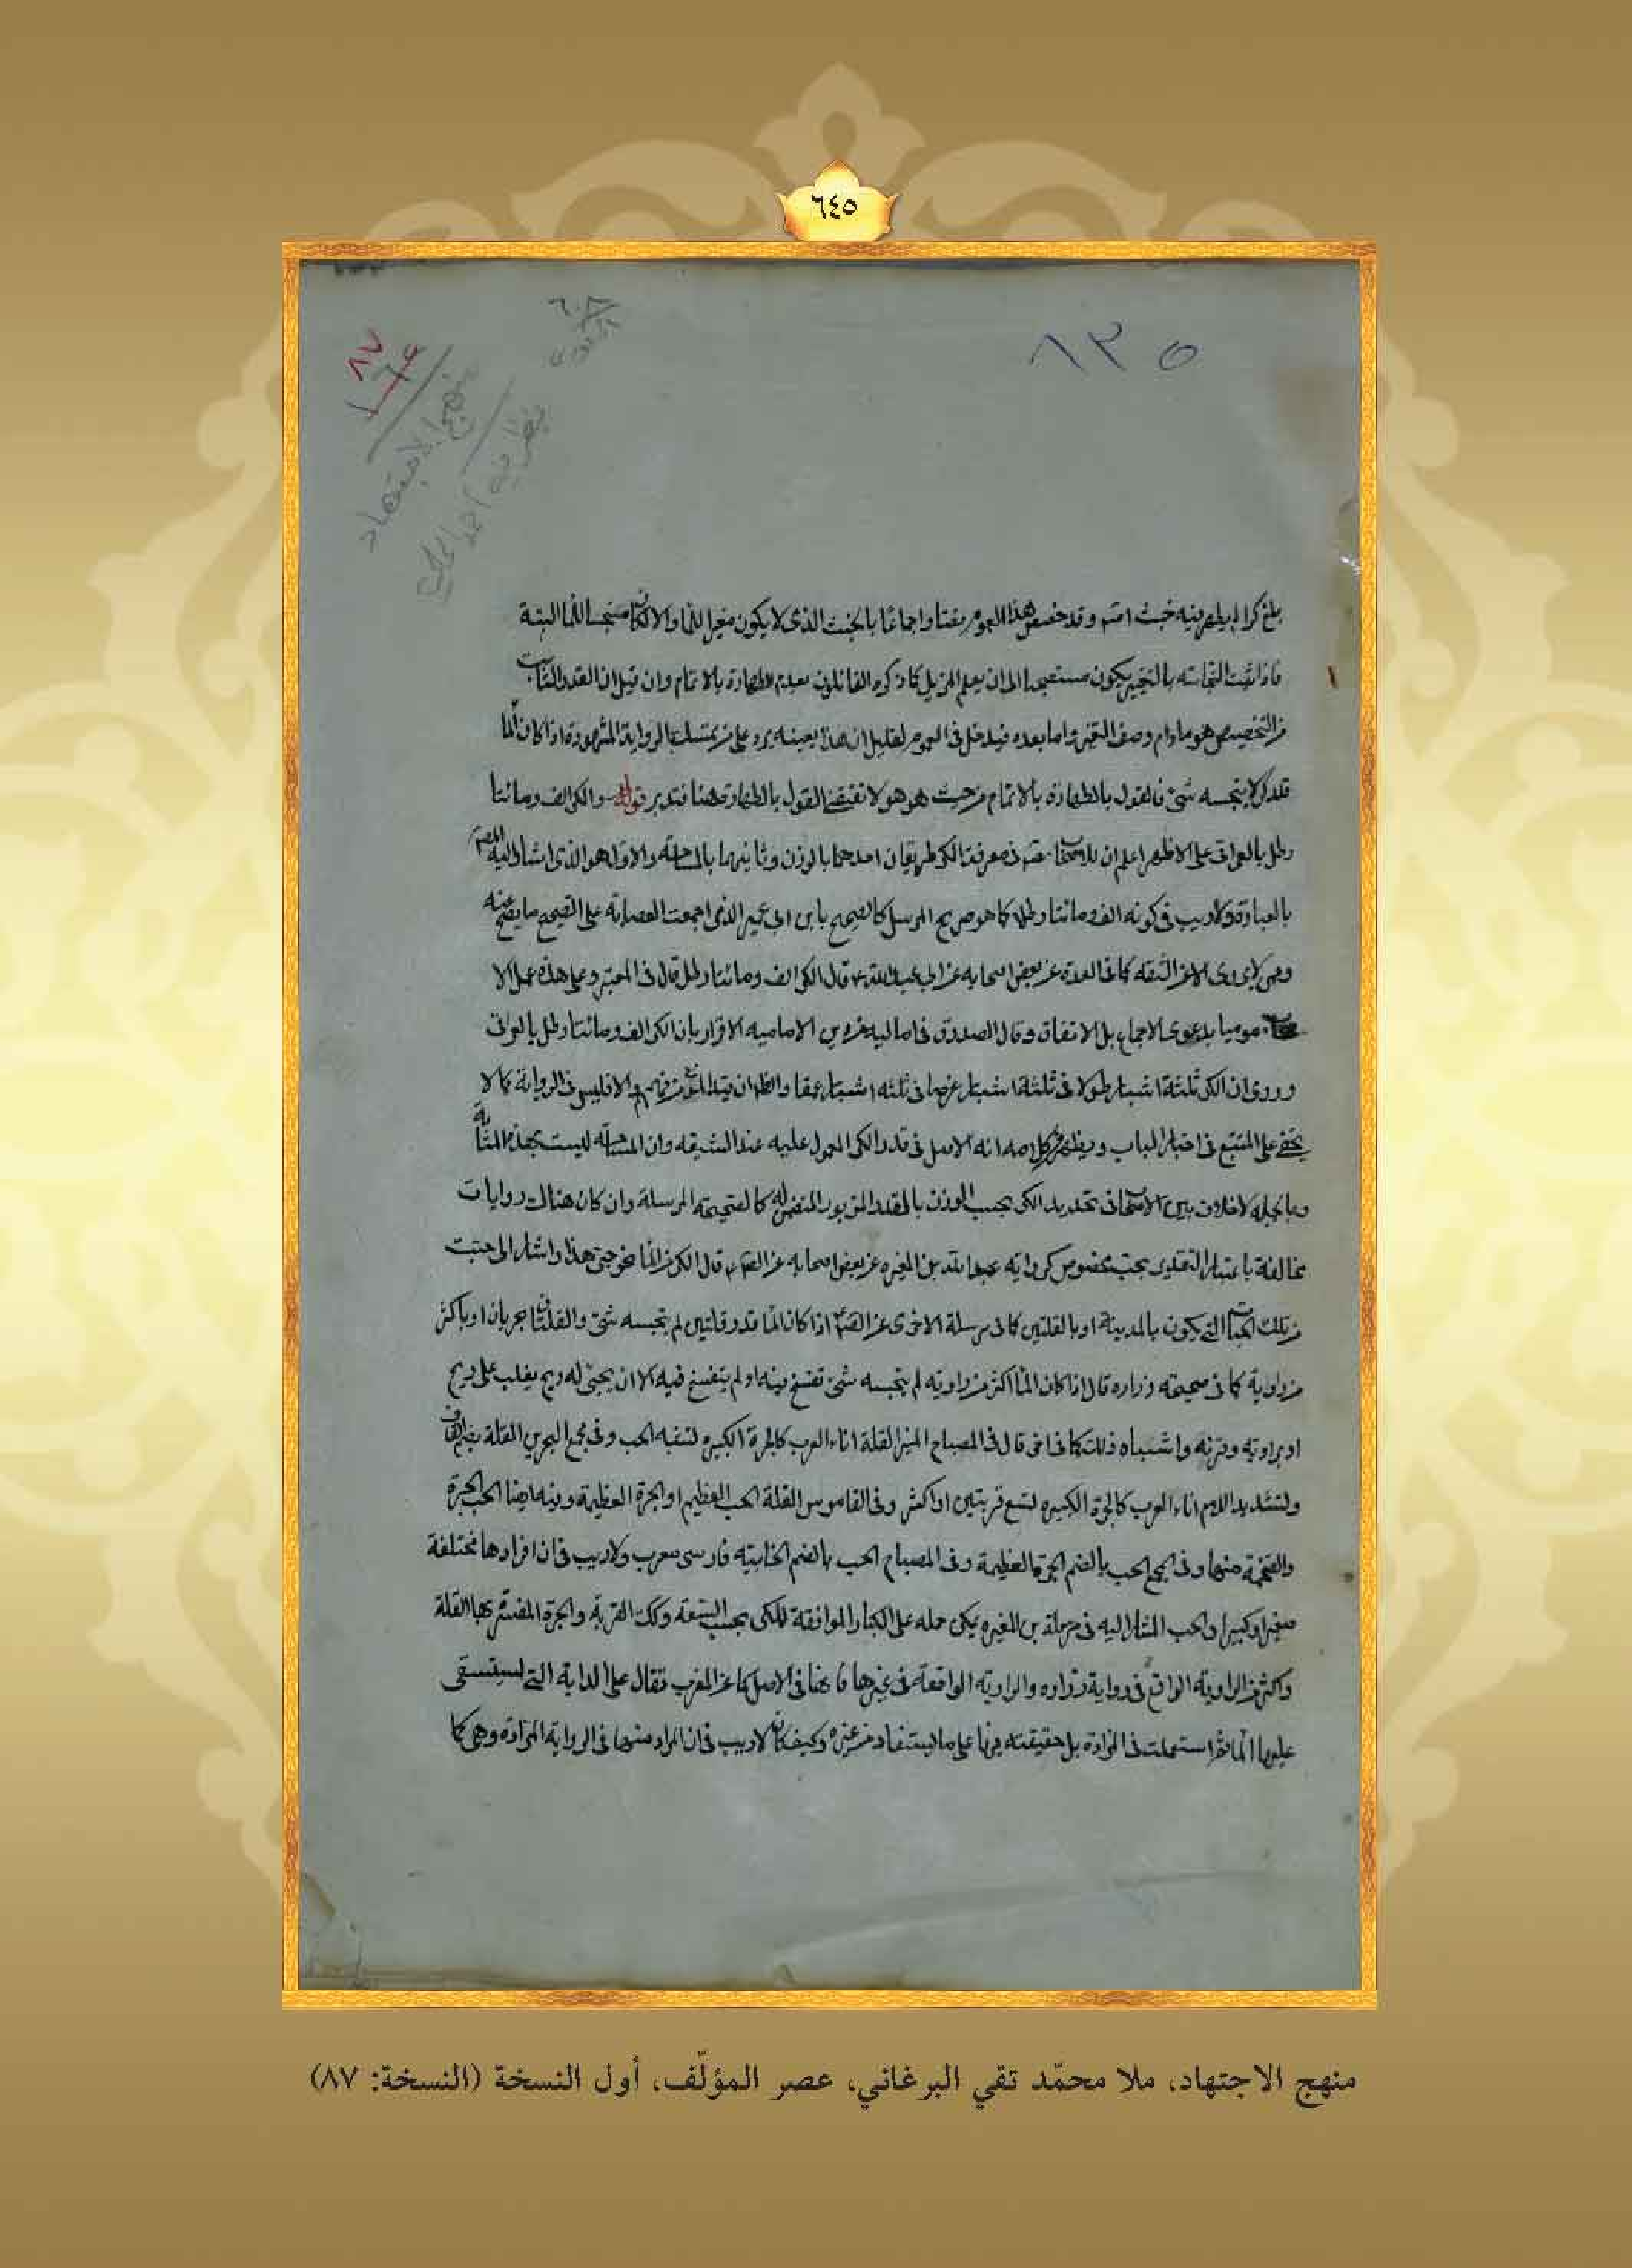 ٦٤٥
٦٠٨
٨٣٥
٨٧
منهج الاجتهاد
بلغ كرا لم يظهر فيه خبث انتهى وقد خصص هذا العموم نصا واجماعا بالخبث الذى لا يكون مغير اللماء والا لكان منجسا للماء البتة
فاذا ثبت النجاسته بالتغيير يكون مستصحبا الى ان يعلم المزيل كما ذكره القائلون بعدم الطهارة بالاتمام وان قيل ان القدر الثابت
من التخصيص هو مادام وصف التغير واما بعده فيدخل فى العموم لقليل ان هذا بعينه يرد على من يتمسك بالرواية المشهودة اذا كان الماء
قدر كر لا ينجسه شئ فالقول بالطهارة بالاتمام من حيث هو هو لا تقتضى القول بالطهارة هنا فتدبر قوله والكر الف ومائتا
رطل بالعراقى على الاظهر اعلم ان للاصحاب فى معرفة الكر طريقان احدهما بالوزن وثانيهما بالمساحة والاول هو الذى اشار اليه المصنف
بالعبارة ولا ريب فى كونه الف ومائتا رطل كما هو صريح المرسل كالصحيح بابن ابى عمير الذى اجمعت العصابة على تصحيح ما يصح عنه
وهى لا يروى الا عن الثقه كما فى العدة عن بعض اصحابه عن ابى عبد الله ع قال الكر الف ومائتا رطل قال فى المعتبر وعلى هذه عمل الا
صحاب موميا بدعوى الاجماع بل الاتفاق وقال الصدوق فى اماليه من دين الامامية الاقرار بان الكر الف ومائتا رطل بالعراقى
وروى ان الكر ثلثة اشبار طولا فى ثلثة اشبار عرضا فى ثلثه اشبار عمقا والظاهر ان قيد المدنى من فهم والا فليس فى الرواية كما لا
يخفى على المتتبع فى اخبار الباب ويظهر من كلامه انه الاصل فى قدر الكر المعول عليه عند الشيعه وان المساحه ليست بهذه المثابة
وبالجملة لا خلاف بين الاصحاب فى تحديد الكر بحسب الوزن بالمقدار المزبور المتضمن له كالصحيحه المرسلة وان كان هناك روايات
مخالفة باعتبار التقدير بحب مخصوص كرواية عبد الله بن المغيره عن بعض اصحابه عن الصادق ع قال الكر من الماء نحو حبى هذا واشار الى حب
من تلك الحباب التى يكون بالمدينة او بالقلتين كما فى مرسلة الاخرى عن الصادق اذا كان الماء قدر قلتين لم ينجسه شئ والقلتان جرتان او باكثر
من راوية كما فى صحيحته زراره قال اذا كان الماء اكثر من راويه لم ينجسه شئ تفسخ فيه او لم يتفسخ فيه الا ان يجئ له ريح يغلب على ريح
او براوية وقربه واشباه ذلك كما فى اخرى قال فى المصباح المنير القلة اناء العرب كالجرة الكبيره لشبه الحب وفى مجمع البحرين القلة بضم القاف
وتشديد اللام اناء العرب كالجرة الكبيره لتسع قربتين او اكثر وفى القاموس القلة الحب العظيم او الجرة العظيمة وفيه ايضا الحب الجرة
والضخمة منها وفى المجمع الحب بالضم الجرة العظيمة وفى المصباح الحب بالضم الخابيته فارسى معرب ولا ريب فى ان افرادها مختلفة
صغيرا وكبيرا والحب المشار اليه فى مرسلة بن المغيره يمكن حمله على الكبار الموافقة للكر بحسب السعة وكك القربه والجرة المفسر بها القلة
واكثر من الراوية الواقع فى رواية زراره والراوية الواقعة فى غيرها فانها فى الاصل كما عن المغرب تقال على الدابة التى ليستسقى
عليها الماء ثم استعملت فى المزادة بل حقيقته فيها على ما ليستفاد من غيره وكيف كان لا ريب فى ان المراد منها فى الرواية المزادة وهى كما
منهج الاجتهاد، ملا محمّد تقي البرغاني، عصر المؤلّف، أول النسخة (النسخة: ٨٧)